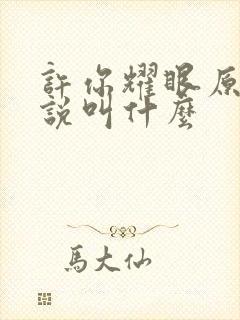 許你耀眼原
說叫什麼
馬大仙